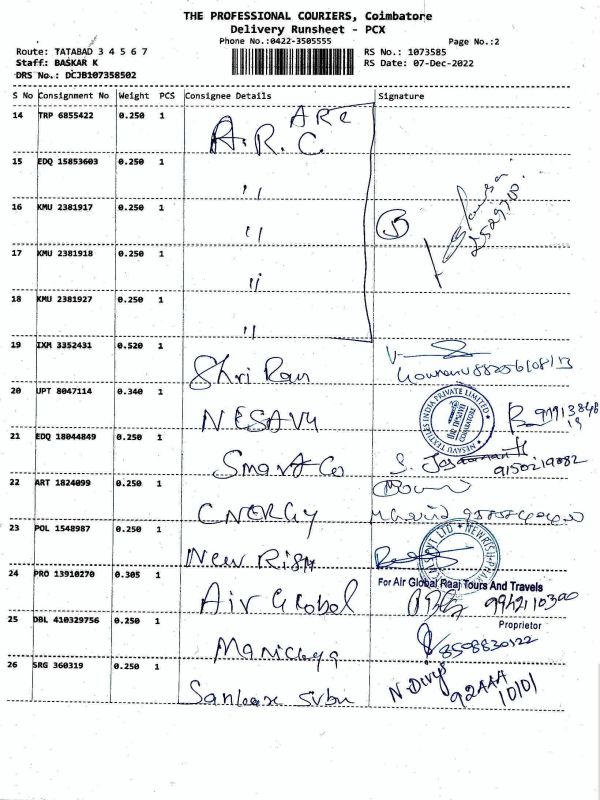 THE PROFESSIONAL COURIERS, Coimbatore
Delivery Runsheet - PCX
Phone No.:0422-3505555
Page No.:2
Route: TATABAD 3 4 5 6 7
Staff: BASKAR K
DRS No.: DCJB107358502
RS No.: 1073585
RS Date: 07-Dec-2022
S No Consignment No Weight PCS Consignee Details Signature
14 TRP 6855422 0.250 1 A.R.C. ARC
15 EDQ 15853603 0.250 1 ,,
16 KMU 2381917 0.250 1 ,,
17 KMU 2381918 0.250 1 ,,
18 KMU 2381927 0.250 1 ,,
19 IXM 3352431 0.520 1 Shri Ram
20 UPT 8047114 0.340 1 NESAVU
NESAVU TEXTILES INDIA PRIVATE LIMITED
21 EDQ 18044849 0.250 1 Smart Co
9150219082
22 ART 1824099 0.250 1 ENERGY
23 POL 1548987 0.250 1 New Rish
24 PRO 13910270 0.305 1 Air Global
For Air Global Raaj Tours And Travels
9942110300
Proprietor
25 DBL 410329756 0.250 1
8508830122
26 SRG 360319 0.250 1
N. Divya